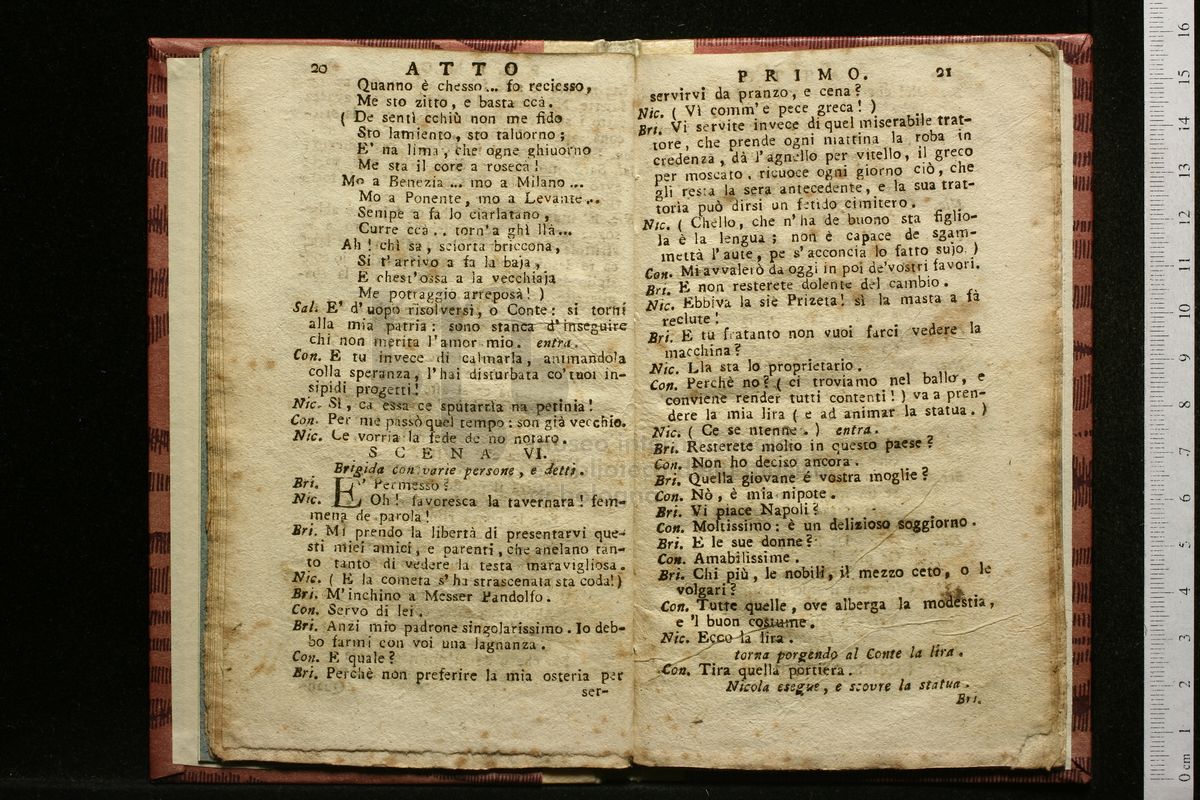 20 ATTO
Quanno è chesso... fo reciesso,
Me sto zitto, e basta ccà.
( De sentì cchiù non me fido
Sto lamiento, sto taluorno;
E' na lima, che ogne ghiuorno
Me sta il core a rosecà!
Mo a Benezia ... mo a Milano ...
Mo a Ponente, mo a Levante...
Sempe a fa lo ciarlatano,
Curre ccà.. torn'a ghì llà...
Ah! chi sa, sciorta briccona,
Si t'arrivo a fa la baja,
E chest'ossa a la vecchiaja
Me potraggio arreposà! )
Sal. E' d'uopo risolversi, o Conte: si torni
alla mia patria: sono stanca d'inseguire
chi non merita l'amor mio. entra.
Con. E tu invece di calmarla, animandola
colla speranza, l'hai disturbata co'tuoi in-
sipidi progetti!
Nic. Sì, ca essa ce sputarria na petinia!
Con. Per me passò quel tempo: son già vecchio.
Nic. Ce vorria la fede de no notaro.
SCENA VI.
Brigida con varie persone, e detti.
Bri. E' Permesso?
Nic. Oh! favoresca la tavernara! fem-
mena de parola!
Bri. Mi prendo la libertà di presentarvi que-
sti miei amici, e parenti, che anelano tan-
to tanto di vedere la testa maravigliosa.
Nic. ( E la cometa s'ha strascenata sta coda!)
Bri. M'inchino a Messer Pandolfo.
Con. Servo di lei.
Bri. Anzi mio padrone singolarissimo. Io deb-
bo farmi con voi una lagnanza.
Con. E quale?
Bri. Perchè non preferire la mia osteria per
ser-
PRIMO. 21
servirvi da pranzo, e cena?
Nic. ( Vì comm'e pece greca! )
Bri. Vi servite invece di quel miserabile trat-
tore, che prende ogni mattina la roba in
credenza, dà l'agnello per vitello, il greco
per moscato, ricuoce ogni giorno ciò, che
gli resta la sera antecedente, e la sua trat-
toria può dirsi un fetido cimitero.
Nic. ( Chello, che n'ha de buono sta figlio-
la è la lengua; non è capace de sgam-
mettà l'aute, pe s'acconcià lo fatto sujo. )
Con. Mi avvalerò da oggi in poi de'vostri favori.
Bri. E non resterete dolente del cambio.
Nic. Ebbiva la siè Prizeta! sì la masta a fà
reclute!
Bri. E tu fratanto non vuoi farci vedere la
macchina?
Nic. Lla sta lo proprietario.
Con. Perchè no? ( ci troviamo nel ballo, e
conviene render tutti contenti! ) va a pren-
dere la mia lira ( e ad animar la statua. )
Nic. ( Ce se ntenne. ) entra.
Bri. Resterete molto in questo paese?
Con. Non ho deciso ancora.
Bri. Quella giovane é vostra moglie?
Con. Nò, è mia nipote.
Bri. Vi piace Napoli?
Con. Moltissimo: è un delizioso soggiorno.
Bri. E le sue donne?
Con. Amabilissime.
Bri. Chi più, le nobili, il mezzo ceto, o le
volgari?
Con. Tutte quelle, ove alberga la modestia,
e 'l buon costume.
Nic. Ecco la lira.
torna porgendo al Conte la lira.
Con. Tira quella portiera.
Nicola esegue, e scovre la statua.
Bri.
0 cm 1 2 3 4 5 6 7 8 9 10 11 12 13 14 15 16